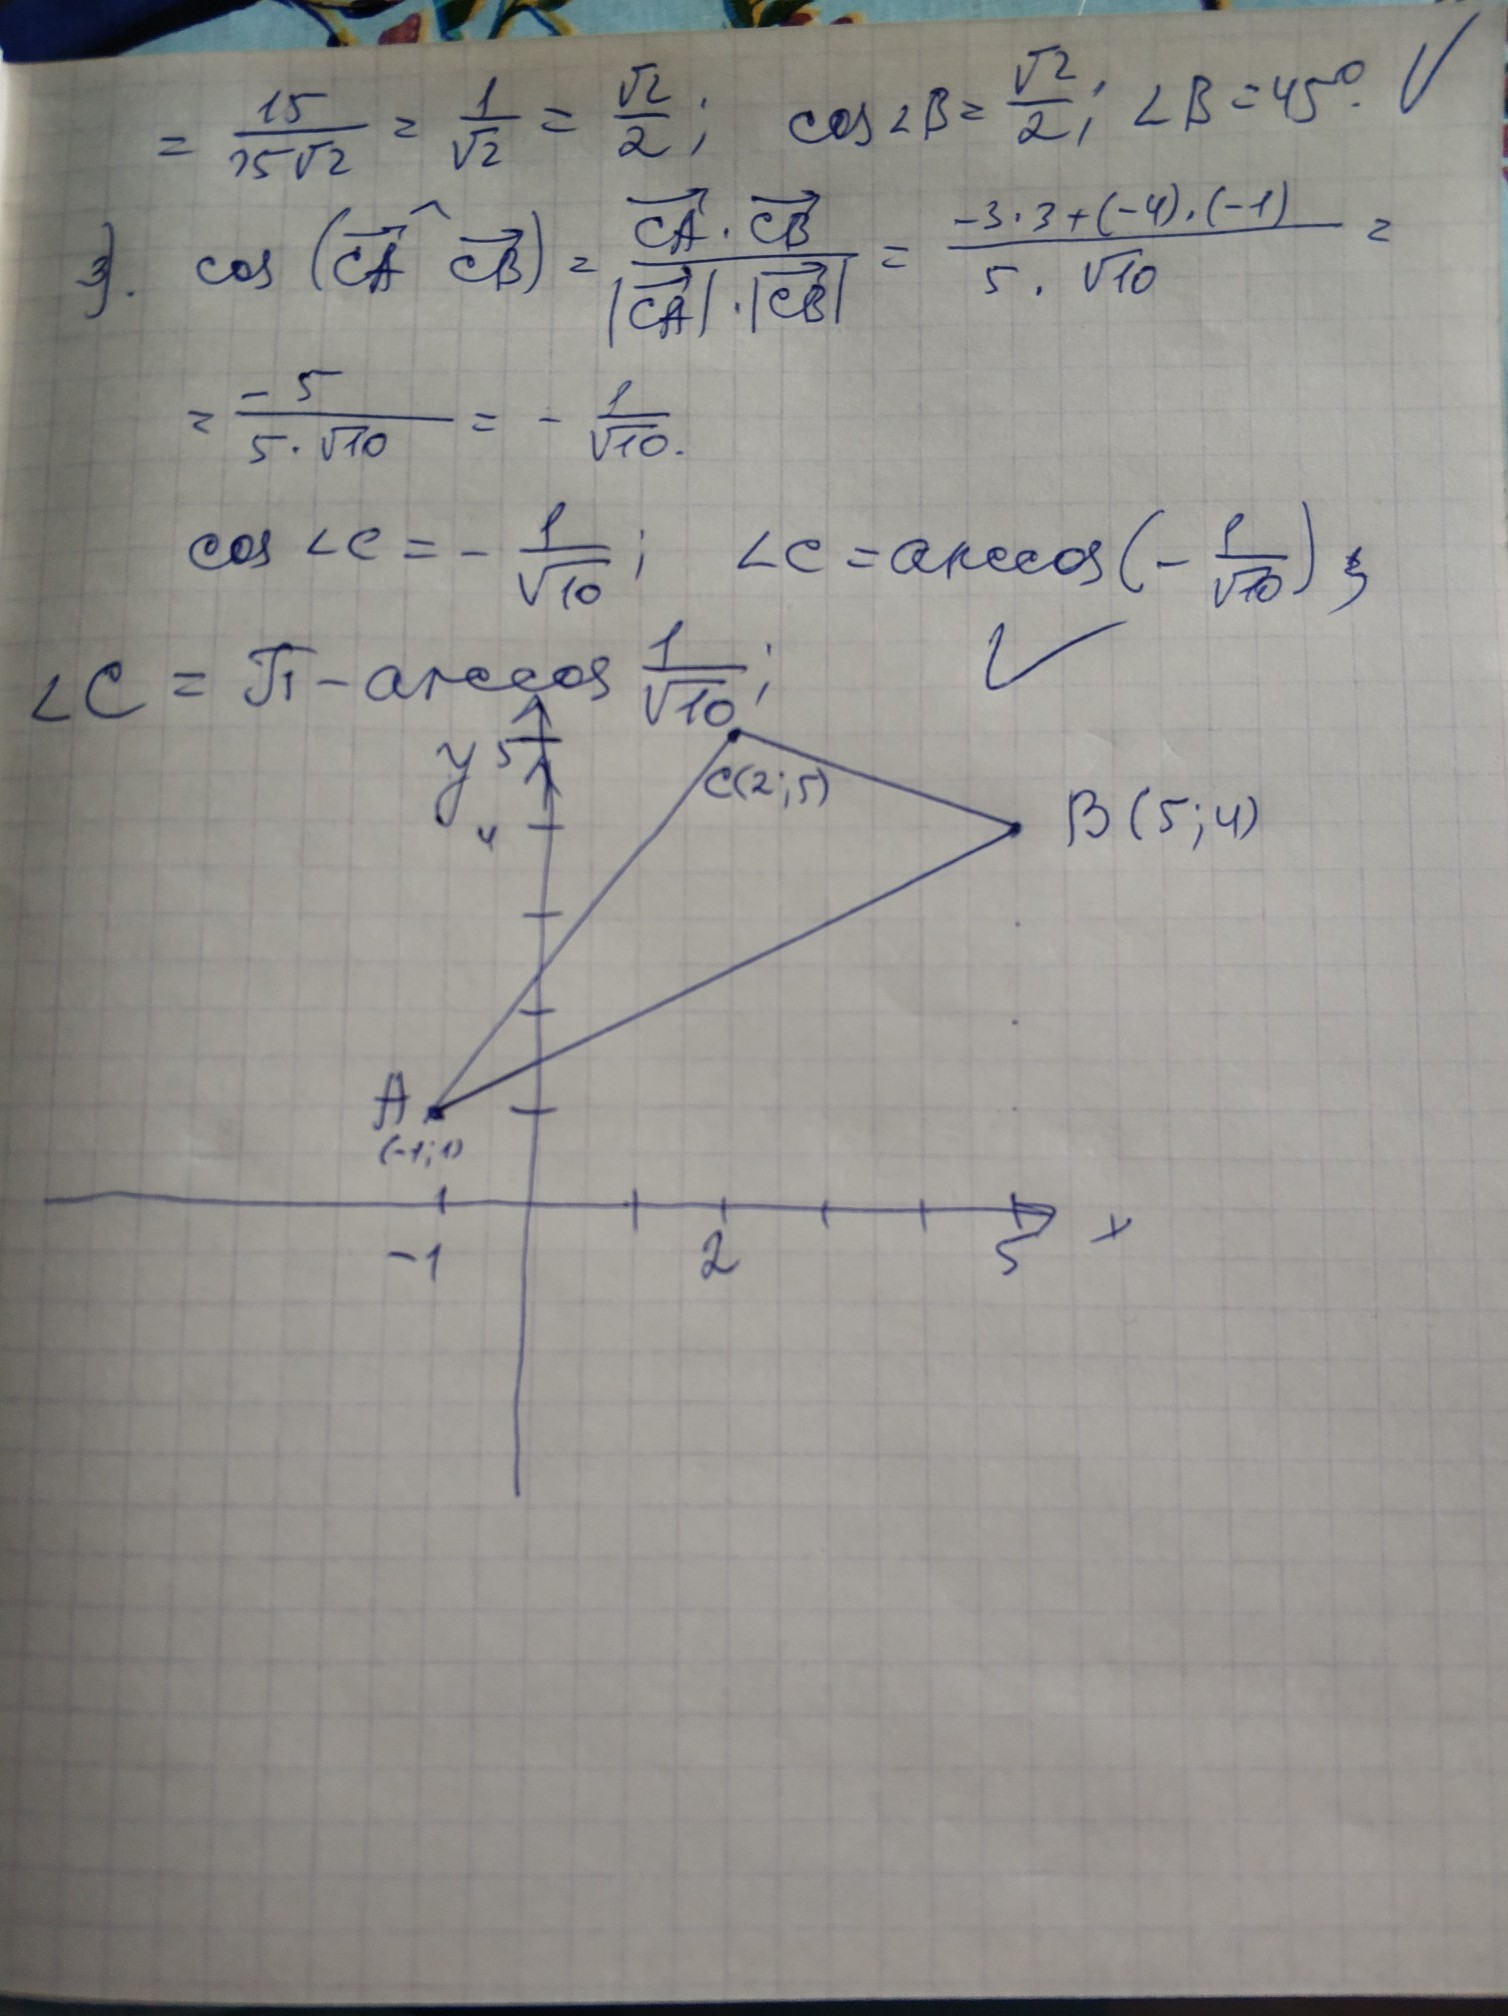 = 15/15√2 = 1/√2 = √2/2; cos∠B = √2/2; ∠B = 45°.
3). cos (CA ^ CB) = CA · CB / |CA| · |CB| = -3·3+(-4)·(-1) / 5 · √10 =
= -5 / 5 · √10 = - 1/√10.
cos ∠C = - 1/√10; ∠C = arccos(- 1/√10);
∠C = π - arccos 1/√10;
y 5
C(2;5)
4
B (5;4)
A
(-1;1)
x
-1 2 5